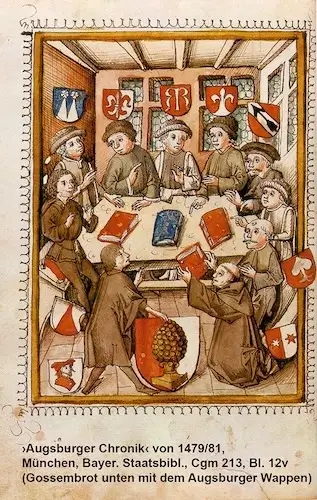 ›Augsburger Chronik‹ von 1479/81,
München, Bayer. Staatsbibl., Cgm 213, Bl. 12v
(Gossembrot unten mit dem Augsburger Wappen)